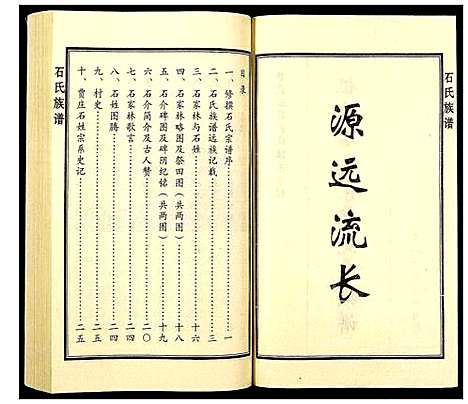 石氏族谱
源远流长
目录
一、修撰石氏宗谱序……一
二、石氏族谱远族记载……三
三、石家林与石姓……一六
四、石家林略图及祭四图(共两图)……一八
五、石介碑图及碑阴纪铭(共两图)……一九
六、石介简介及古人赞……二〇
七、石家林歌言……二四
八、石姓图腾……二四
九、村史……二五
十、贾庄石姓宗系史记……二五
石氏族谱